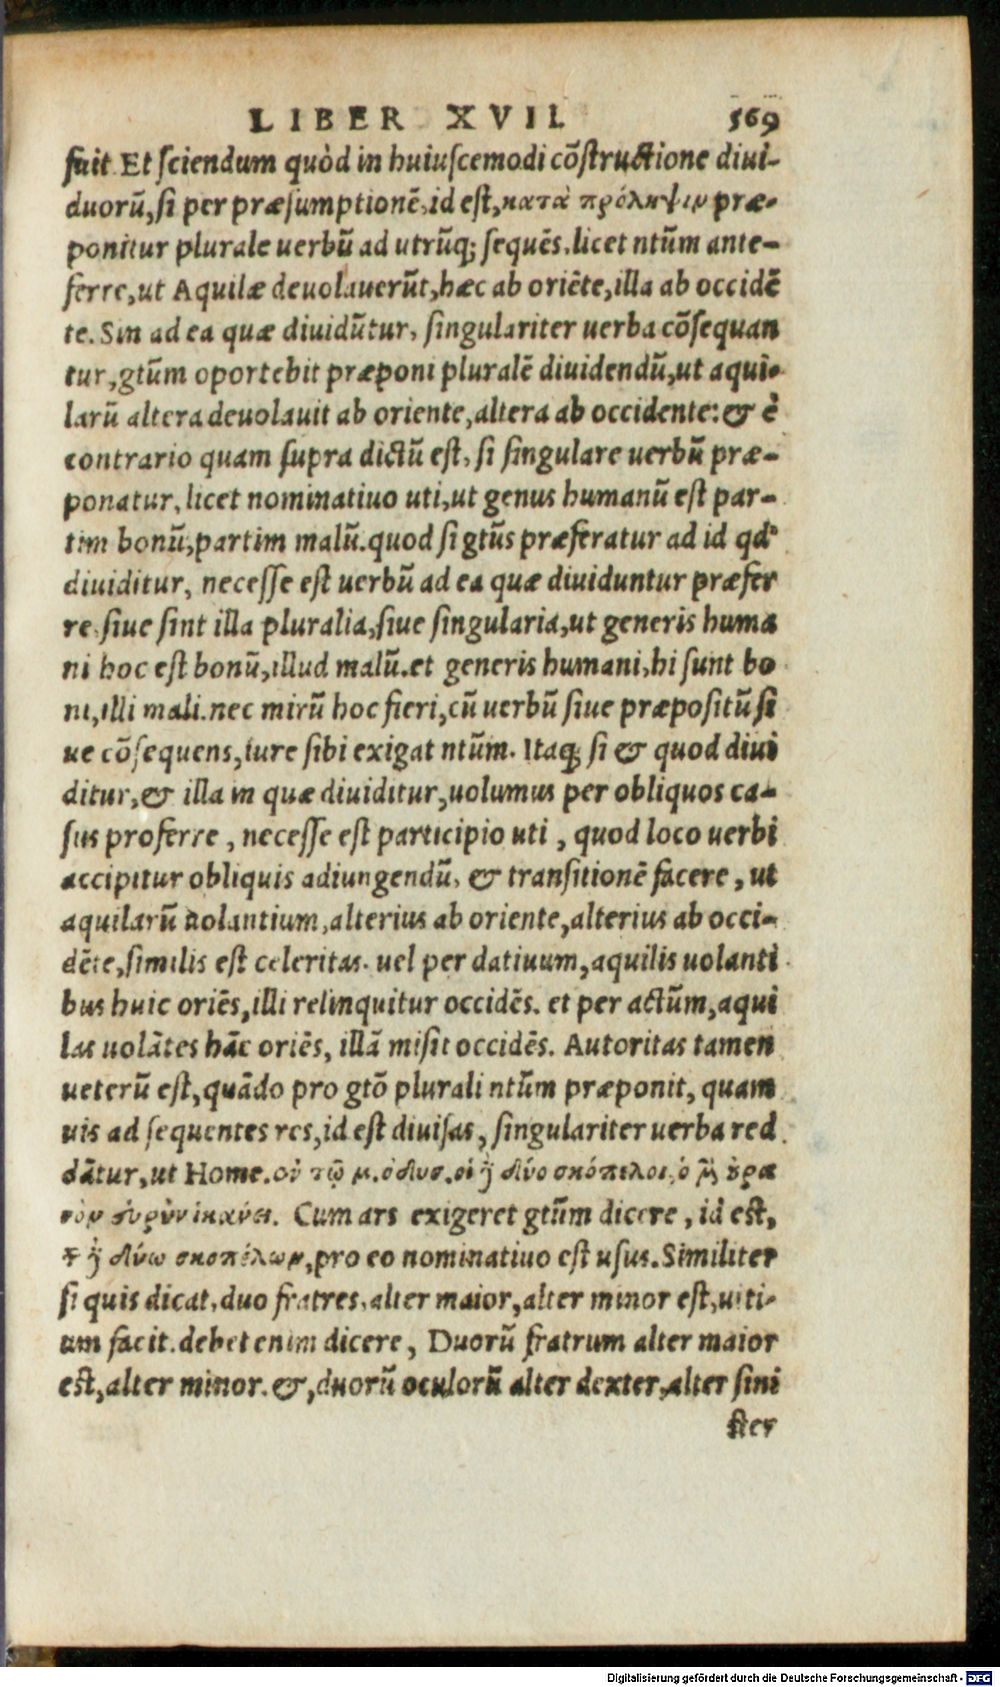 LIBER XVII. 569
fuit. Et sciendum quòd in huiuscemodi cōstructione diui-
duorū, si per præsumptionē, id est, κατὰ πρόληψιν præ-
ponitur plurale uerbū ad utrūq; sequēs, licet ntūm ante-
ferre, ut Aquilæ deuolauerūt, hæc ab oriēte, illa ab occidē
te. Sin ad ea quæ diuidūtur, singulariter uerba cōsequan
tur, gtūm oportebit præponi pluralē diuidendū, ut aqui-
larū altera deuolauit ab oriente, altera ab occidente: & è
contrario quam supra dictū est, si singulare uerbū præ-
ponatur, licet nominatiuo uti, ut genus humanū est par-
tim bonū, partim malū. quod si gtūs præferatur ad id qd
diuiditur, necesse est uerbū ad ea quæ diuiduntur præfer
re, siue sint illa pluralia, siue singularia, ut generis huma
ni hoc est bonū, illud malū. et generis humani, hi sunt bo
ni, illi mali. nec mirū hoc fieri, cū uerbū siue præpositū si
ue cōsequens, iure sibi exigat ntūm. Itaq; si & quod diui
ditur, & illa in quæ diuiditur, uolumus per obliquos ca-
sus proferre, necesse est participio uti, quod loco uerbi
accipitur obliquis adiungendū, & transitionē facere, ut
aquilarū uolantium, alterius ab oriente, alterius ab occi-
dēte, similis est celeritas. uel per datiuum, aquilis uolanti
bus huic oriēs, illi relinquitur occidēs. et per actūm, aqui
las uolātes hāc oriēs, illā misit occidēs. Autoritas tamen
ueterū est, quādo pro gtō plurali ntūm præponit, quam
uis ad sequentes res, id est diuisas, singulariter uerba red
dātur, ut Home. ἐν τῷ μ. ὀδυσ. οἱ ἢ δύο σκόπελοι, ὁ μ̃ οὐρα
νὸν εὐρὺν ἱκανει. Cum ars exigeret gtūm dicere, id est,
ἢ δύω σκοπέλων, pro eo nominatiuo est usus. Similiter
si quis dicat, duo fratres, alter maior, alter minor est, uiti-
um facit. debet enim dicere, Duorū fratrum alter maior
est, alter minor. &, duorū oculorū alter dexter, alter sini
ster
Digitalisierung gefördert durch die Deutsche Forschungsgemeinschaft - DFG